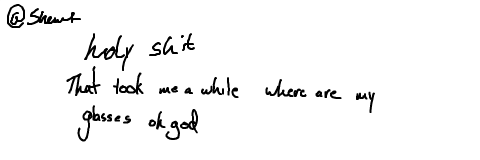 holy shit
That took me a while where are my
glasses oh god